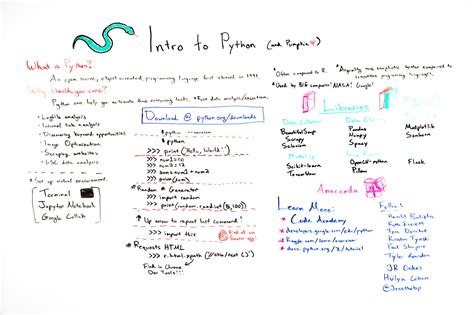 Intro to Python (and Pumpkin)
What is Python?
An open source, object oriented, programming language first released in 1991
Why should you care?
Python can help you automate time consuming tasks. * Fast data analysis/execution.
- Logfile analysis
- Internal link analysis
- Discovering keyword opportunities
- Image Optimization
- Scraping websites
- GSC data analysis
* Set up virtual environment
Terminal
Jupyter Notebook
Google Collab
Download @ python.org/downloads
python --version
>>> print('Hello, World!')
>>> num1=10
>>> num2=
>>> sum = num1+num2
>>> print(sum)
* Random # Generator
>>> import random
>>> print(random.randint(0,100))
↑ Up arrow to repeat last command!
>>> import this
* Requests HTML
>>> r.html.xpath('//h1/text()')
Find in Chrome
Dev Tools!!!
* Often compared to R.
* Used by BIG companies: NASA! Google!
* Arguably more simplistic syntax compared to
programming languages.
Libraries
Data Collection
BeautifulSoup
Scrapy
Selenium
Data
Pandas
Numpy
Scipy
Matplotlib
Seaborn
Modeling
Scikit-learn
Tensorflow
OpenCV-python
Pillow
Flask
Anaconda
Learn More:
* Code Academy
* developers.google.com/edu/python
* Kaggle.com/learn/overview
* docs.python.org/3/tutorial
Follow:
Hamlet Batista
Ruth Everett
Tom Donahue
Kristin Tynski
Paul Shapiro
Tyler Reardon
JR Oakes
Hulya Coban
@Jessthebp